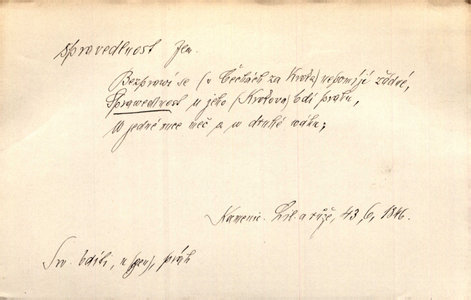 Spravedlnost jen.
Bezpraví se (v Čechách za Kroka) nehoví již žádné,
Spravedlnost u jeho (Krokova) bdí prahu,
W jedné ruce meč a w druhé wáhu;
Kamenic. Lil. a růže, 43, 1846.
Srv. bdíti, u (gen), práh